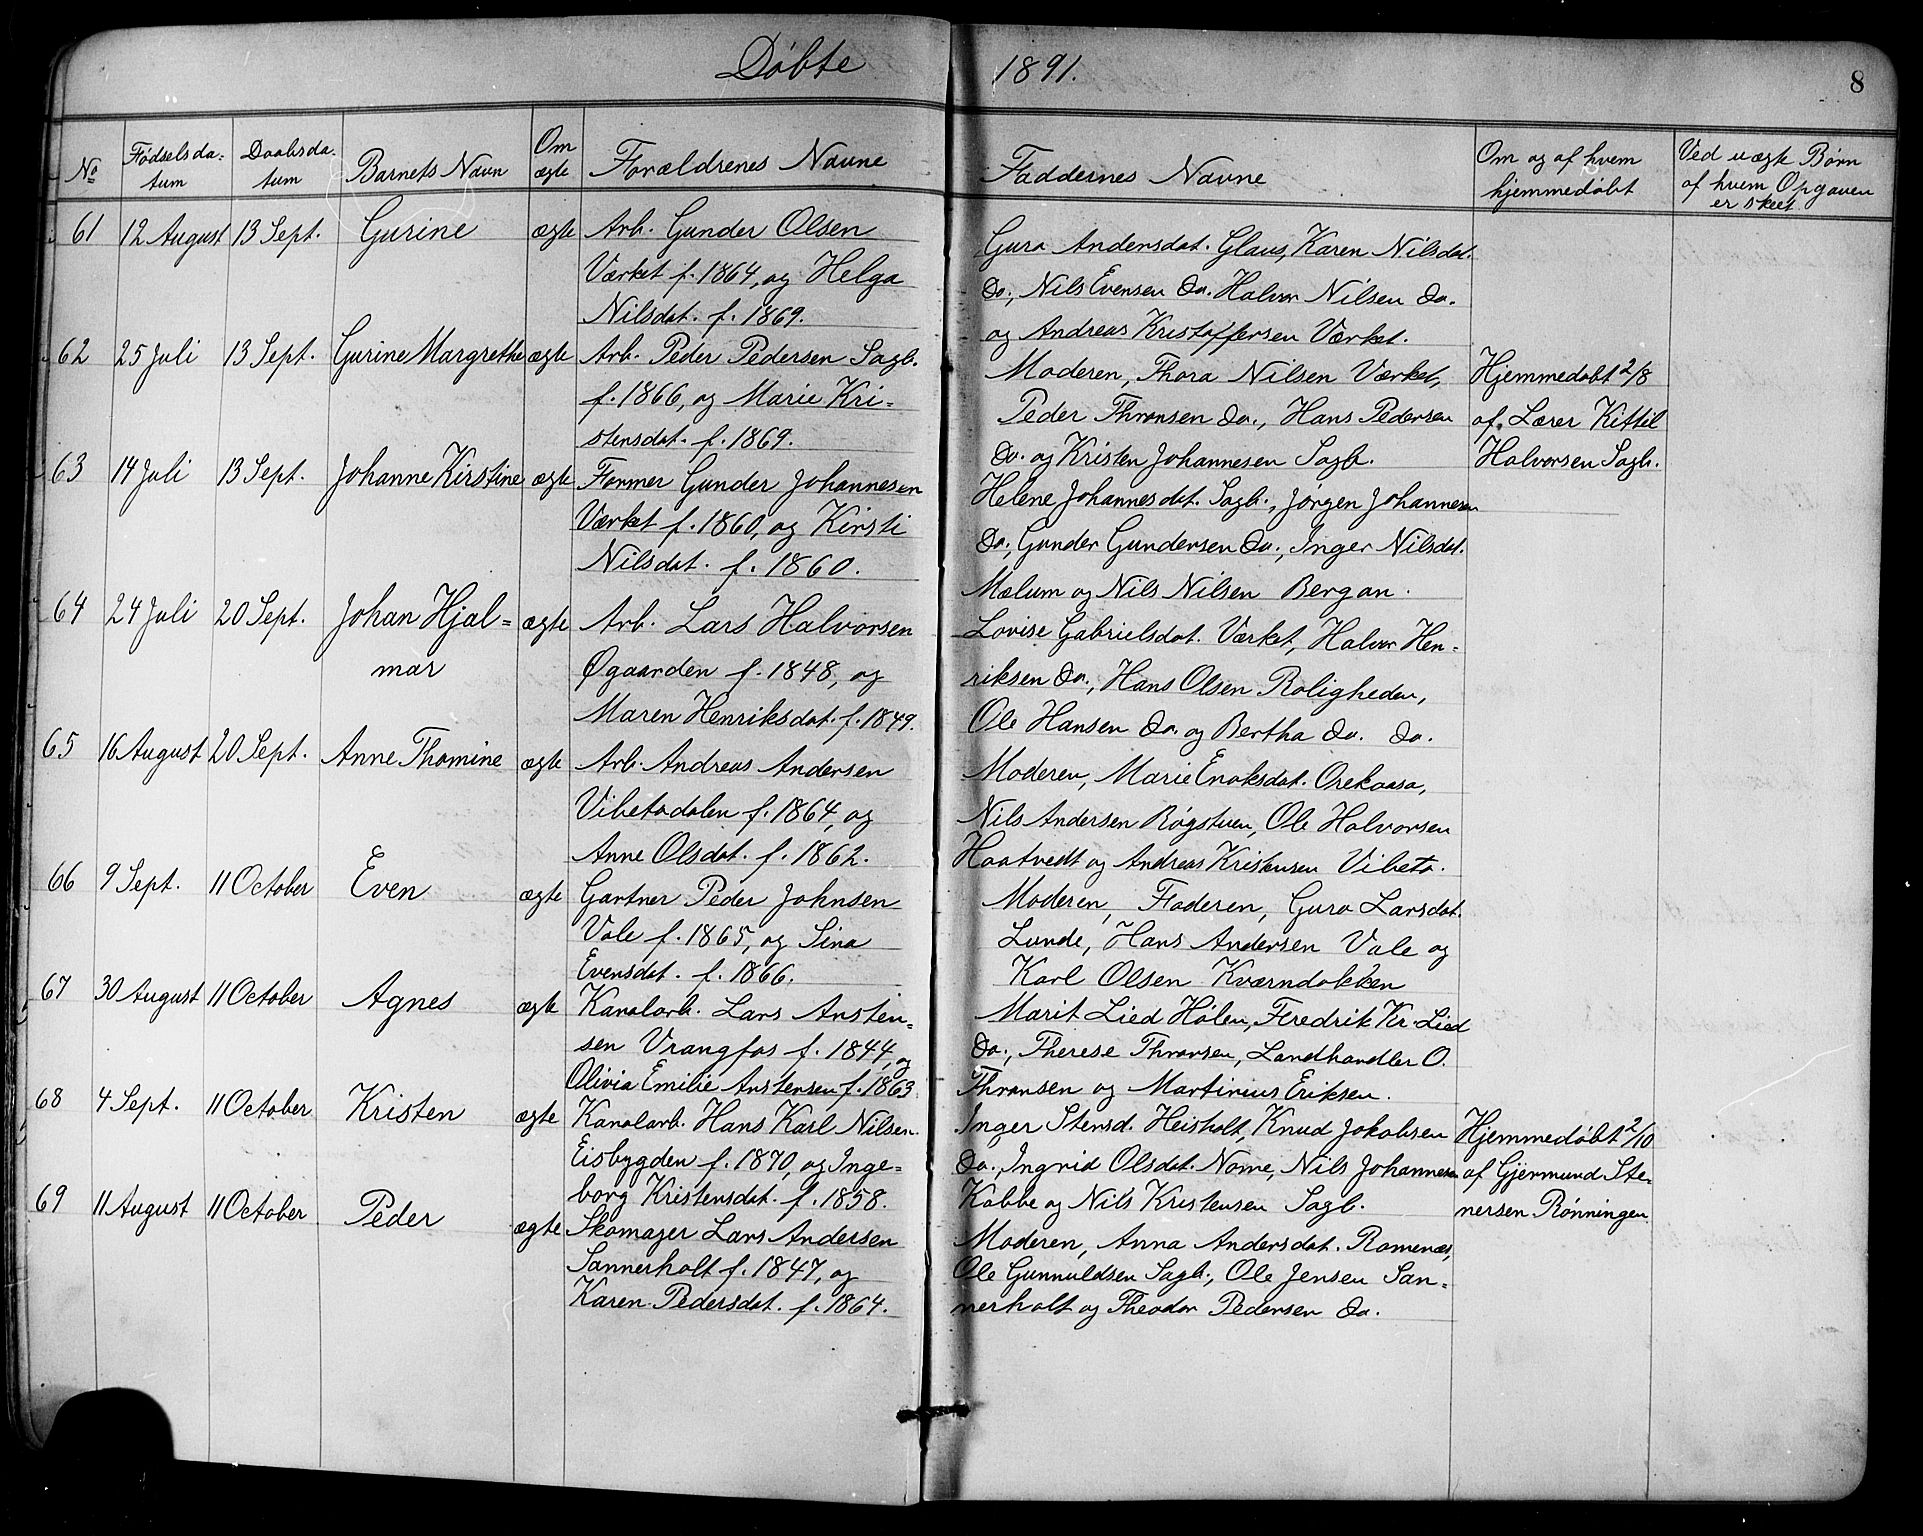 Døbte 1891.
8
No
Fødselsda-
tum
Daabsda-
tum
Barnets Navn
Om
ægte
Forældrenes Navne
Faddernes Navne
Om og af hvem
hjemmedøbt
Ved uægte Børn
af hvem Opgaven
er skeet
61 12 August 13 Sept. Gurine ægte Arb. Gunder Olsen
Værket f. 1864, og Helga
Nilsdat. f. 1869.
Guro Andersdat. Glaus, Karen Nilsdat.
Do., Nils Evensen Do. Halvor Nilsen Do.
og Andreas Kristoffersen Værket.
62 25 Juli 13 Sept. Gurine Margrethe ægte Arb. Peder Pedersen Sagb.
f. 1866, og Marie Kri-
stensdat. f. 1869.
Moderen, Thora Nilsen Værket,
Peder Thronsen Do., Hans Pedersen
Do. og Kristen Johannesen Sagb.
Hjemmedøbt 2/8
af Lærer Kittil
Halvorsen Sagb.
63 14 Juli 13 Sept. Johanne Kirstine ægte Former Gunder Johannesen
Værket f. 1860, og Kirsti
Nilsdat. f. 1860.
Helene Johannesdat. Sagb., Jørgen Johannesen
Do., Gunder Gundersen Do., Inger Nilsdat.
Mælum og Nils Nilsen Bergan.
64 24 Juli 20 Sept. Johan Hjal-
mar
ægte Arb. Lars Halvorsen
Øgaarden f. 1848, og
Maren Henriksdat. f. 1849.
Lovise Gabrielsdat. Værket, Halvor Hen-
riksen Do., Hans Olsen Roligheden,
Ole Hansen Do. og Bertha Do. Do.
65 16 August 20 Sept. Anne Thomine ægte Arb. Andreas Andersen
Vibetodalen f. 1864, og
Anne Olsdat. f. 1862.
Moderen, Marie Enoksdat. Orekaasa,
Nils Andersen Røgstuen, Ole Halvorsen
Haatvedt og Andreas Kristensen Vibeto.
66 9 Sept. 11 October Even ægte Gartner Peder Johnsen
Vale f. 1865, og Sina
Evensdat. f. 1866.
Moderen, Faderen, Guro Larsdat.
Lunde, Hans Andersen Vale og
Karl Olsen Kværndokken
67 30 August 11 October Agnes ægte Kanalarb. Lars Ansten-
sen Vrangfos f. 1844, og
Olivia Emilie Anstensen f. 1863
Marit Lied Hølen, Fredrik Kr. Lied
Do., Therese Thronsen, Landhandler O.
Thronsen og Martinius Eriksen.
68 4 Sept. 11 October Kristen ægte Kanalarb. Hans Karl Nilsen
Eisbygden f. 1870, og Inge-
borg Kristensdat. f. 1858.
Inger Stensd. Heisholt, Knud Jakobsen
Do., Ingrid Olsdat. Nome, Nils Johannesen
Kabbe og Nils Kristensen Sagb.
Hjemmedøbt 2/10
af Gjermund Ste-
nersen Rønningen
69 11 August 11 October Peder ægte Skomager Lars Andersen
Sannerholt f. 1847, og
Karen Pedersdat. f. 1864.
Moderen, Anna Andersdat. Romenæs,
Ole Gunnuldsen Sagb., Ole Jensen San-
nerholt og Theodor Pedersen Do.